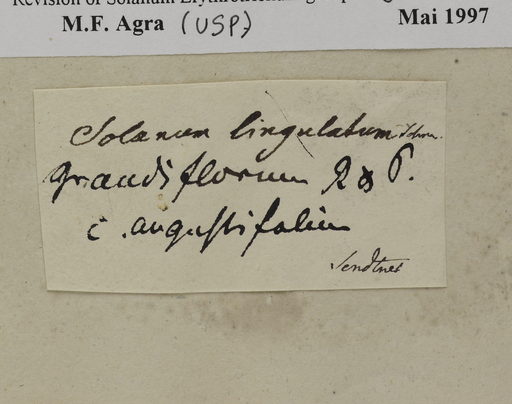 Revision of Solanum Erythrotrichum
M.F. Agra (USP) Mai 1997
Solanum lingulatum
grandiflorum R & P.
c. angustifolium
Sendtner